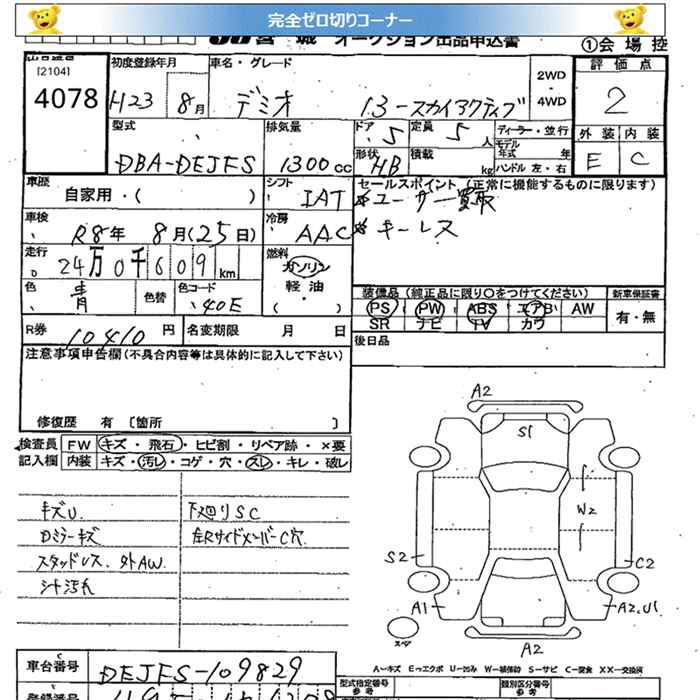 完全ゼロ切りコーナー
JU宮城 オークション出品申込書
①会場控
[2104]
4078
初度登録年月
H23 8月
車名・グレード
デミオ 1.3-スカイアクティブ
2WD
4WD
評価点
2
外装 内装
E C
型式
DBA-DEJFS
排気量
1300cc
ドア 5
定員 5人
ディーラー・並行
モデル年式 年
形状 HB
積載 kg
ハンドル 左・右
車歴
自家用・( )
シフト
IAT
セールスポイント(正常に機能するものに限ります)
*ユーザー買取
*キーレス
車検
R8年 8月(25日)
冷房
AAC
走行
24万0千609km
燃料
ガソリン
軽油
( )
色
青
色替
色コード
40E
装備品(純正品に限り○をつけてください)
PS PW ABS エアB AW
SR ナビ TV カワ
新車保証書
有・無
R券
10410円
名変期限 月 日
後日品
注意事項申告欄(不具合内容等は具体的に記入して下さい)
修復歴 有 [箇所 ]
検査員記入欄
FW キズ・飛石・ヒビ割・リペア跡・×要
内装 キズ・汚レ・コゲ・穴・スレ・キレ・破レ
キズU.
Dミラーキズ
スタッドレス.外AW.
シート汚れ
下廻りSC
左RサイドメンバーC穴
A2
S1
W2
S2
C2
A1
A2.U1
A2
スペア
A-キズ E-エクボ U-凹み W-補修跡 S-サビ C-腐食 XX-交換済
車台番号
DEJFS-109829
型式指定番号
参考
類別区分番号
参考
登録番号